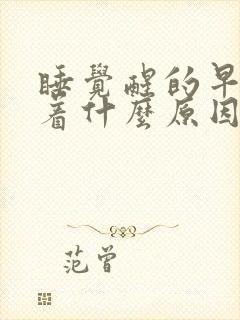 睡覺醒的早
着什麼原因
范曾